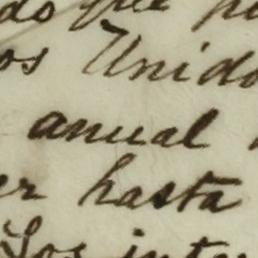 do que
os Unido
anual
er hasta
Los inte